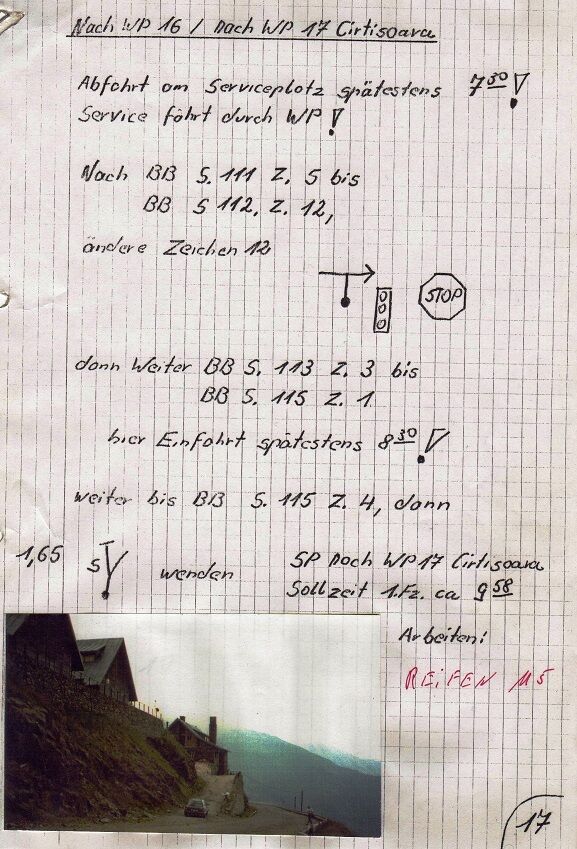 Nach WP 16 / Nach WP 17 Cirtisoara
Abfahrt am Serviceplatz spätestens 7³⁰!
Service fährt durch WP!
Nach BB S. 111 Z. 5 bis
BB S 112, Z. 12,
ändere Zeichen 12
STOP
dann Weiter BB S. 113 Z. 3 bis
BB S. 115 Z. 1
hier Einfahrt spätestens 8³⁰!
weiter bis BB S. 115 Z. 4, dann
1,65 S! wenden SP Nach WP 17 Cirtisoara
Sollzeit 1.Fz. ca 9⁵⁸
Arbeiten:
REIFEN M5
17